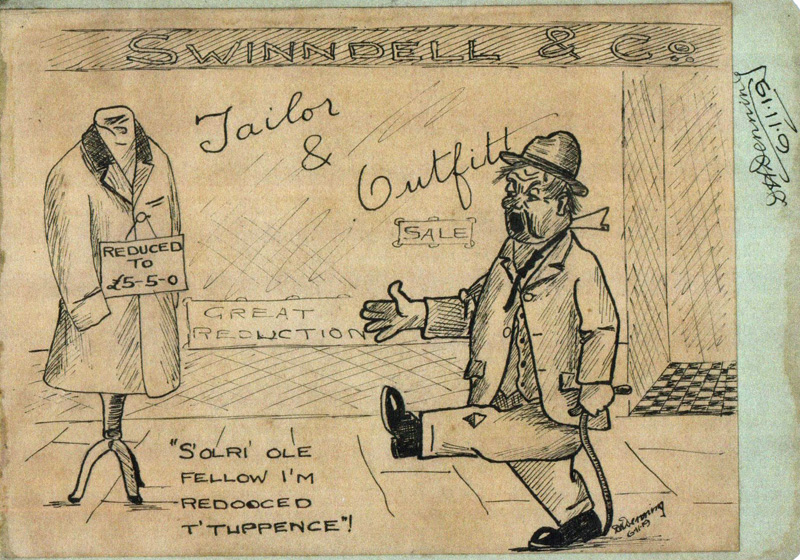 SWINNDELL & Co
Tailor
&
Outfitt
SALE
REDUCED
TO
£5-5-0
GREAT
REDUCTION
"S'OLRI' OLE
FELLOW I'M
REDOOCED
T' TUPPENCE"!
6·11·19
6·11·19